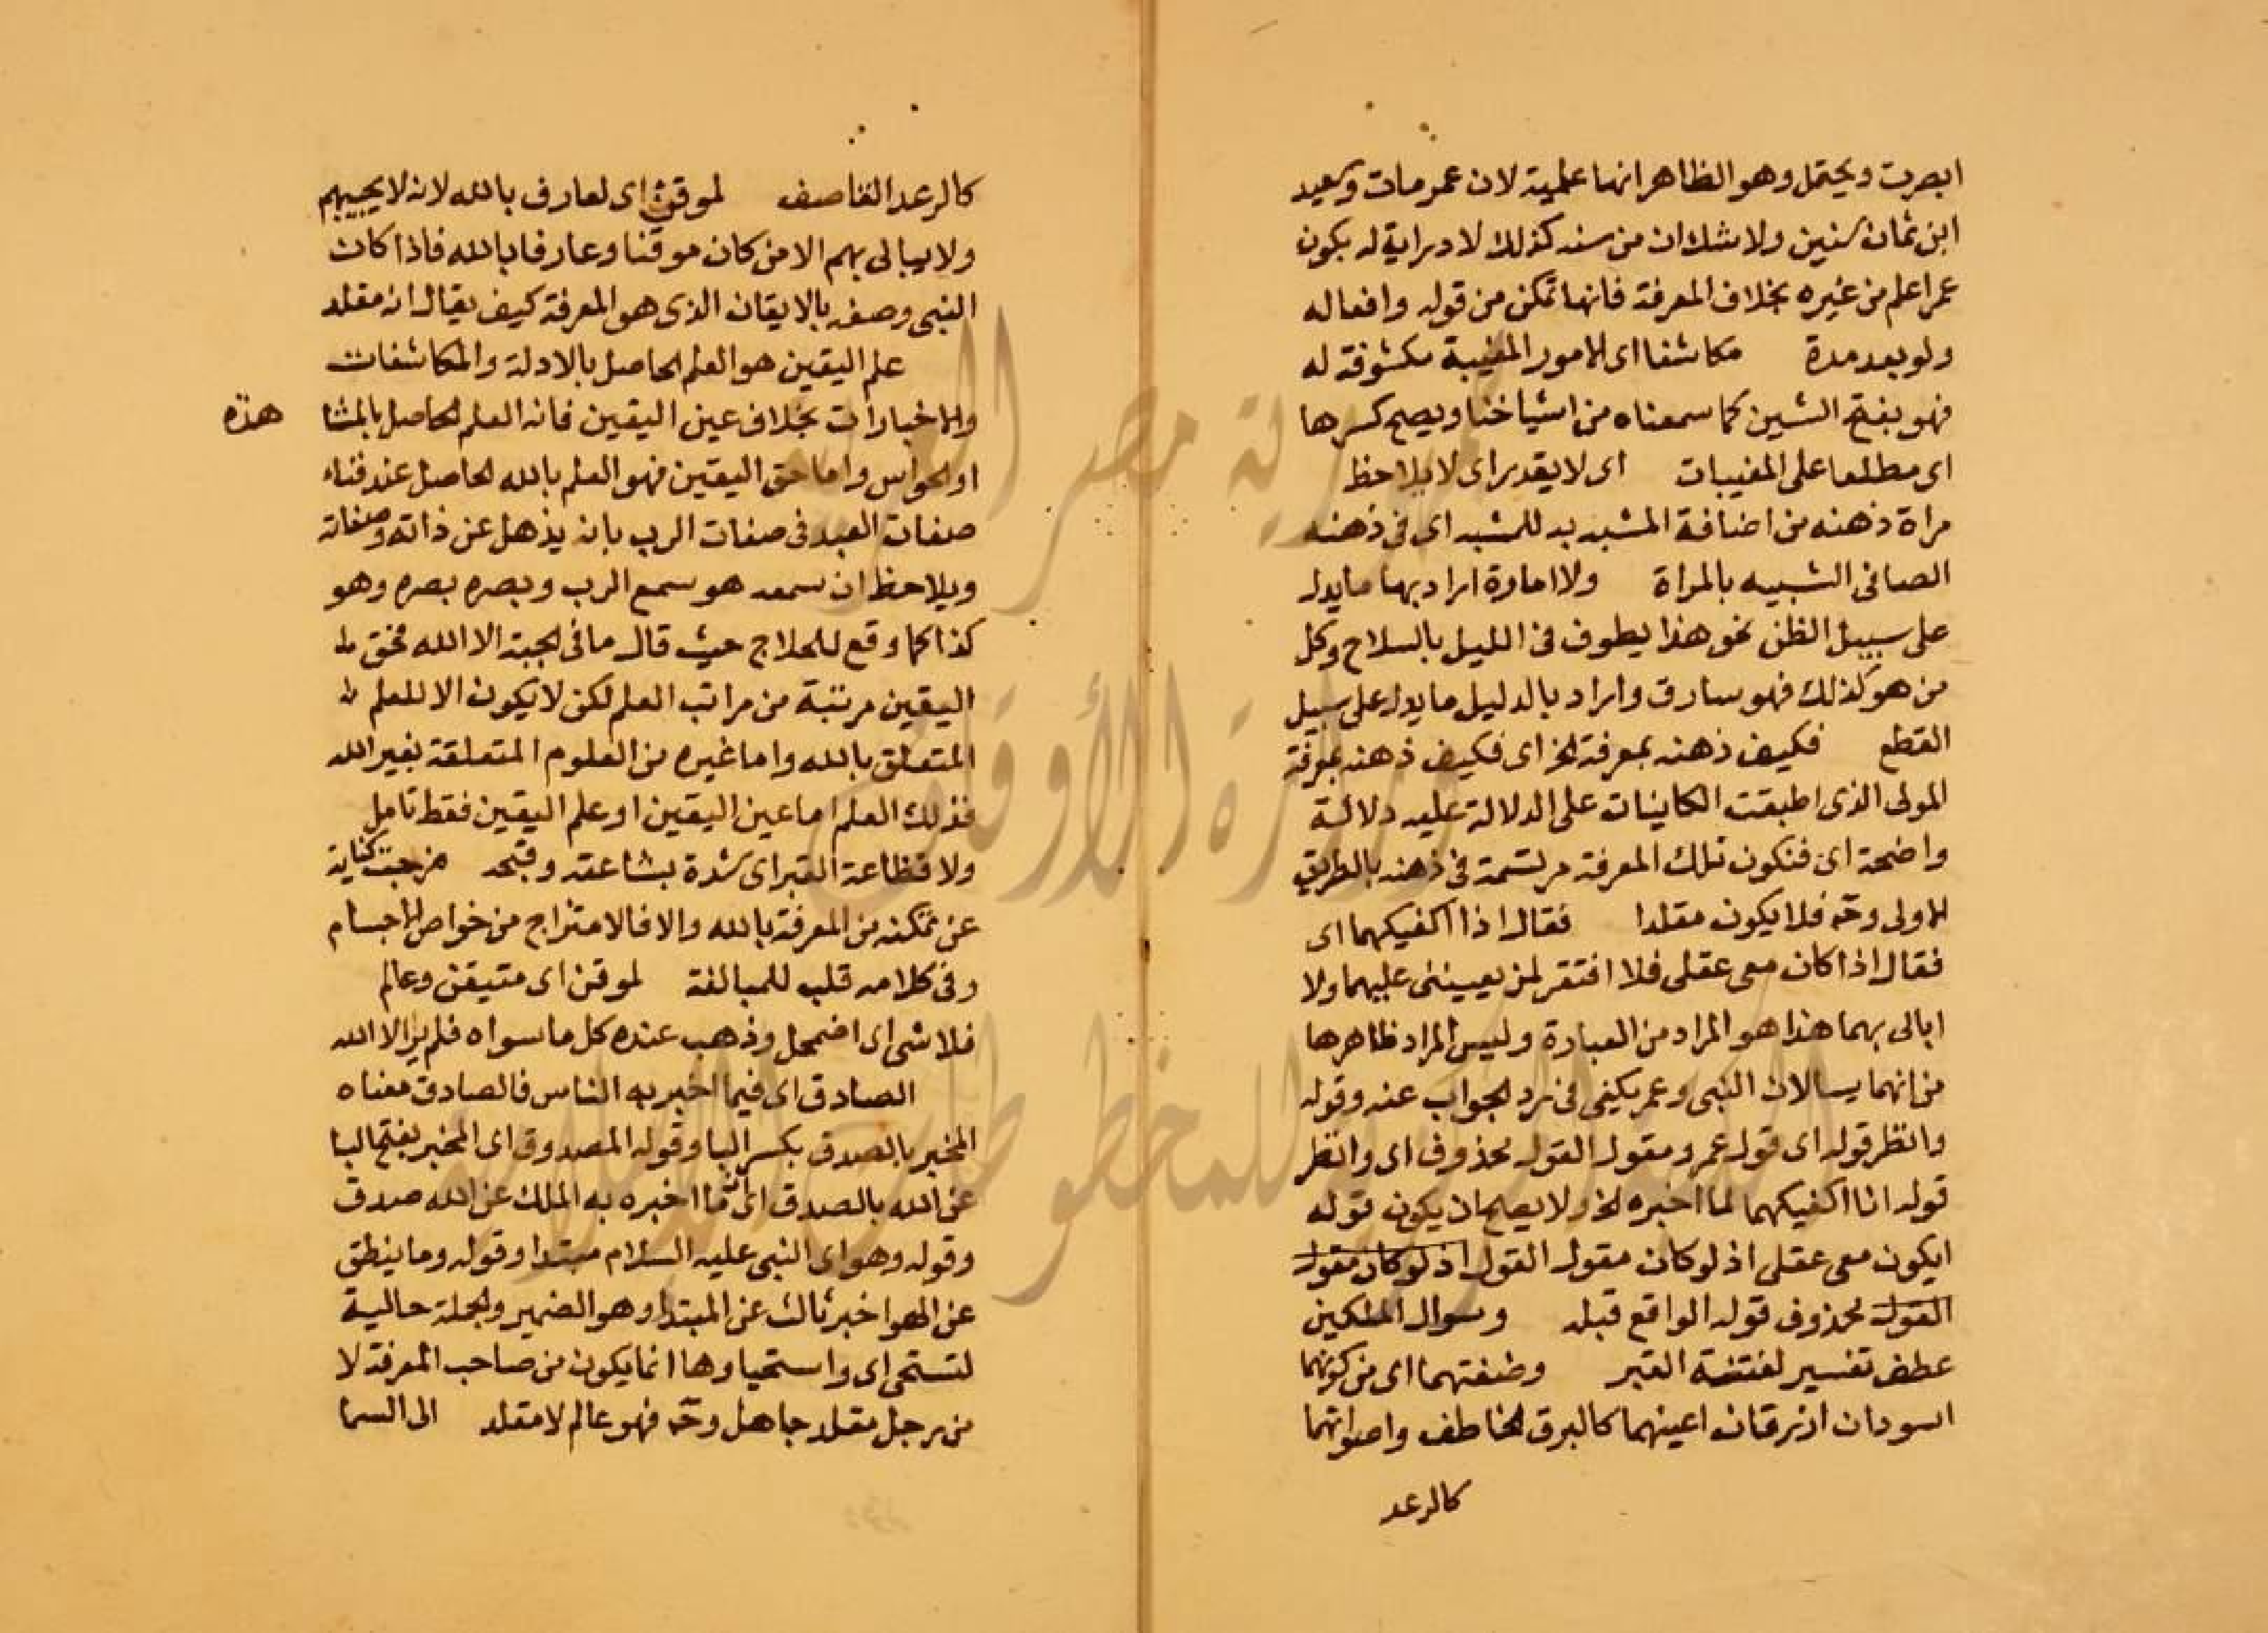 ابصرت ويحتمل وهو الظاهر انها علمية لان عمر مات وسعيد
ابن ثمان سنين ولا شك ان من سنه كذلك لا دراية له بكون
عمر اعلم من غيره بخلاف المعرفة فانها تمكن من قوله وافعاله
ولو بعد مدة مكاشفا اى الامور المغيبة مكشوفة له
فهو بفتح الشين كما سمعناه من اشياخنا ويصح كسرها
اى مطلعا على المغيبات اى لا يقدر اى لا يلاحظ
مراة ذهنه من اضافة المشبه به للمشبه اى فى ذهنه
الصافى الشبيه بالمراة ولا امارة اراد بها ما يدل
على سبيل الظن نحو هذا يطوف فى الليل بالسلاح وكل
من هو كذلك فهو سارق واراد بالدليل ما يدل على سبيل
القطع فكيف ذهنه بمعرفة الخ اى فكيف ذهنه بمعرفة
المولى الذى اطبقت الكاينات على الدلالة عليه دلالة
واضحة اى فتكون تلك المعرفة مرتسمة فى ذهنه بالطريق
الاولى وح فلا يكون مقلدا فقال اذا اكفيكهما اى
فقال اذا كان معى عقلى فلا افتقر لمن يعيننى عليهما ولا
ابالى بهما هذا هو المراد من العبارة وليس المراد ظاهرها
من انهما يسالان النبى وعمر يكفى فى رد الجواب عنه وقوله
وانظر قوله اى قول عمر ومقول القول محذوف اى وانظر
قوله انا اكفيكهما لما اخبره الخ ولا يصح ان يكون قوله
ايكون معى عقلى اذ لو كان مقول القول اذ لو كان مقول
القول محذوف قوله الواقع قبله وسوال الملكين
عطف تفسير لفتنة القبر وصفتهما اى من كونهما
اسودان ازرقان اعينهما كالبرق الخاطف واصواتهما
كالرعد
كالرعد القاصف لموقن اى لعارف بالله لانه لا يجيبهم
ولا يبالى بهم الا من كان موقنا وعارفا بالله فاذا كان
النبى وصفه بالايقان الذى هو المعرفة كيف يقال انه مقلد
علم اليقين هو العلم الحاصل بالادلة والمكاشفات
والاخبارات بخلاف عين اليقين فانه العلم الحاصل بالمشا هذه
او الحواس واما حق اليقين فهو العلم بالله الحاصل عند فناء
صفات العبد فى صفات الرب بان يذهل عن ذاته وصفاته
ويلاحظ ان سمعه هو سمع الرب وبصره بصره وهو
كذا كما وقع للحلاج حيث قال ما فى الجبة الا الله فحق
اليقين مرتبة من مراتب العلم لكن لا يكون الا للعلم
المتعلق بالله واما غيره من العلوم المتعلقة بغير الله
فذلك العلم اما عين اليقين او علم اليقين فقط تامل
ولا فظاعة القبر اى شدة بشاعته وقبحه مزجت كناية
عن تمكنه من المعرفة بالله والا فالامتزاج من خواص الاجسام
وفى كلامه قلب للمبالغة لموقن اى متيقن وعالم
فلاشى اى اضمحل وذهب عنده كل ما سواه فلم ير الا الله
الصادق اى فيما اخبر به الناس فالصادق معناه
المخبر بالصدق بكسر البا وقوله المصدوق اى المخبر بفتح البا
عن الله بالصدق اى ما اخبره به الملك عن الله صدق
وقوله وهو اى النبى عليه السلام مبتدا وقوله وما ينطق
عن الهوا خبر ثالث عن المبتدا وهو الضمير والجملة حالية
لتستحى اى واستحياوها انما يكون من صاحب المعرفة لا
من رجل مقلد جاهل وح فهو عالم لا مقلد الى السما
جمهورية مصر العربية
وزارة الأوقاف
المكتبة المركزية للمخطوطات الإسلامية